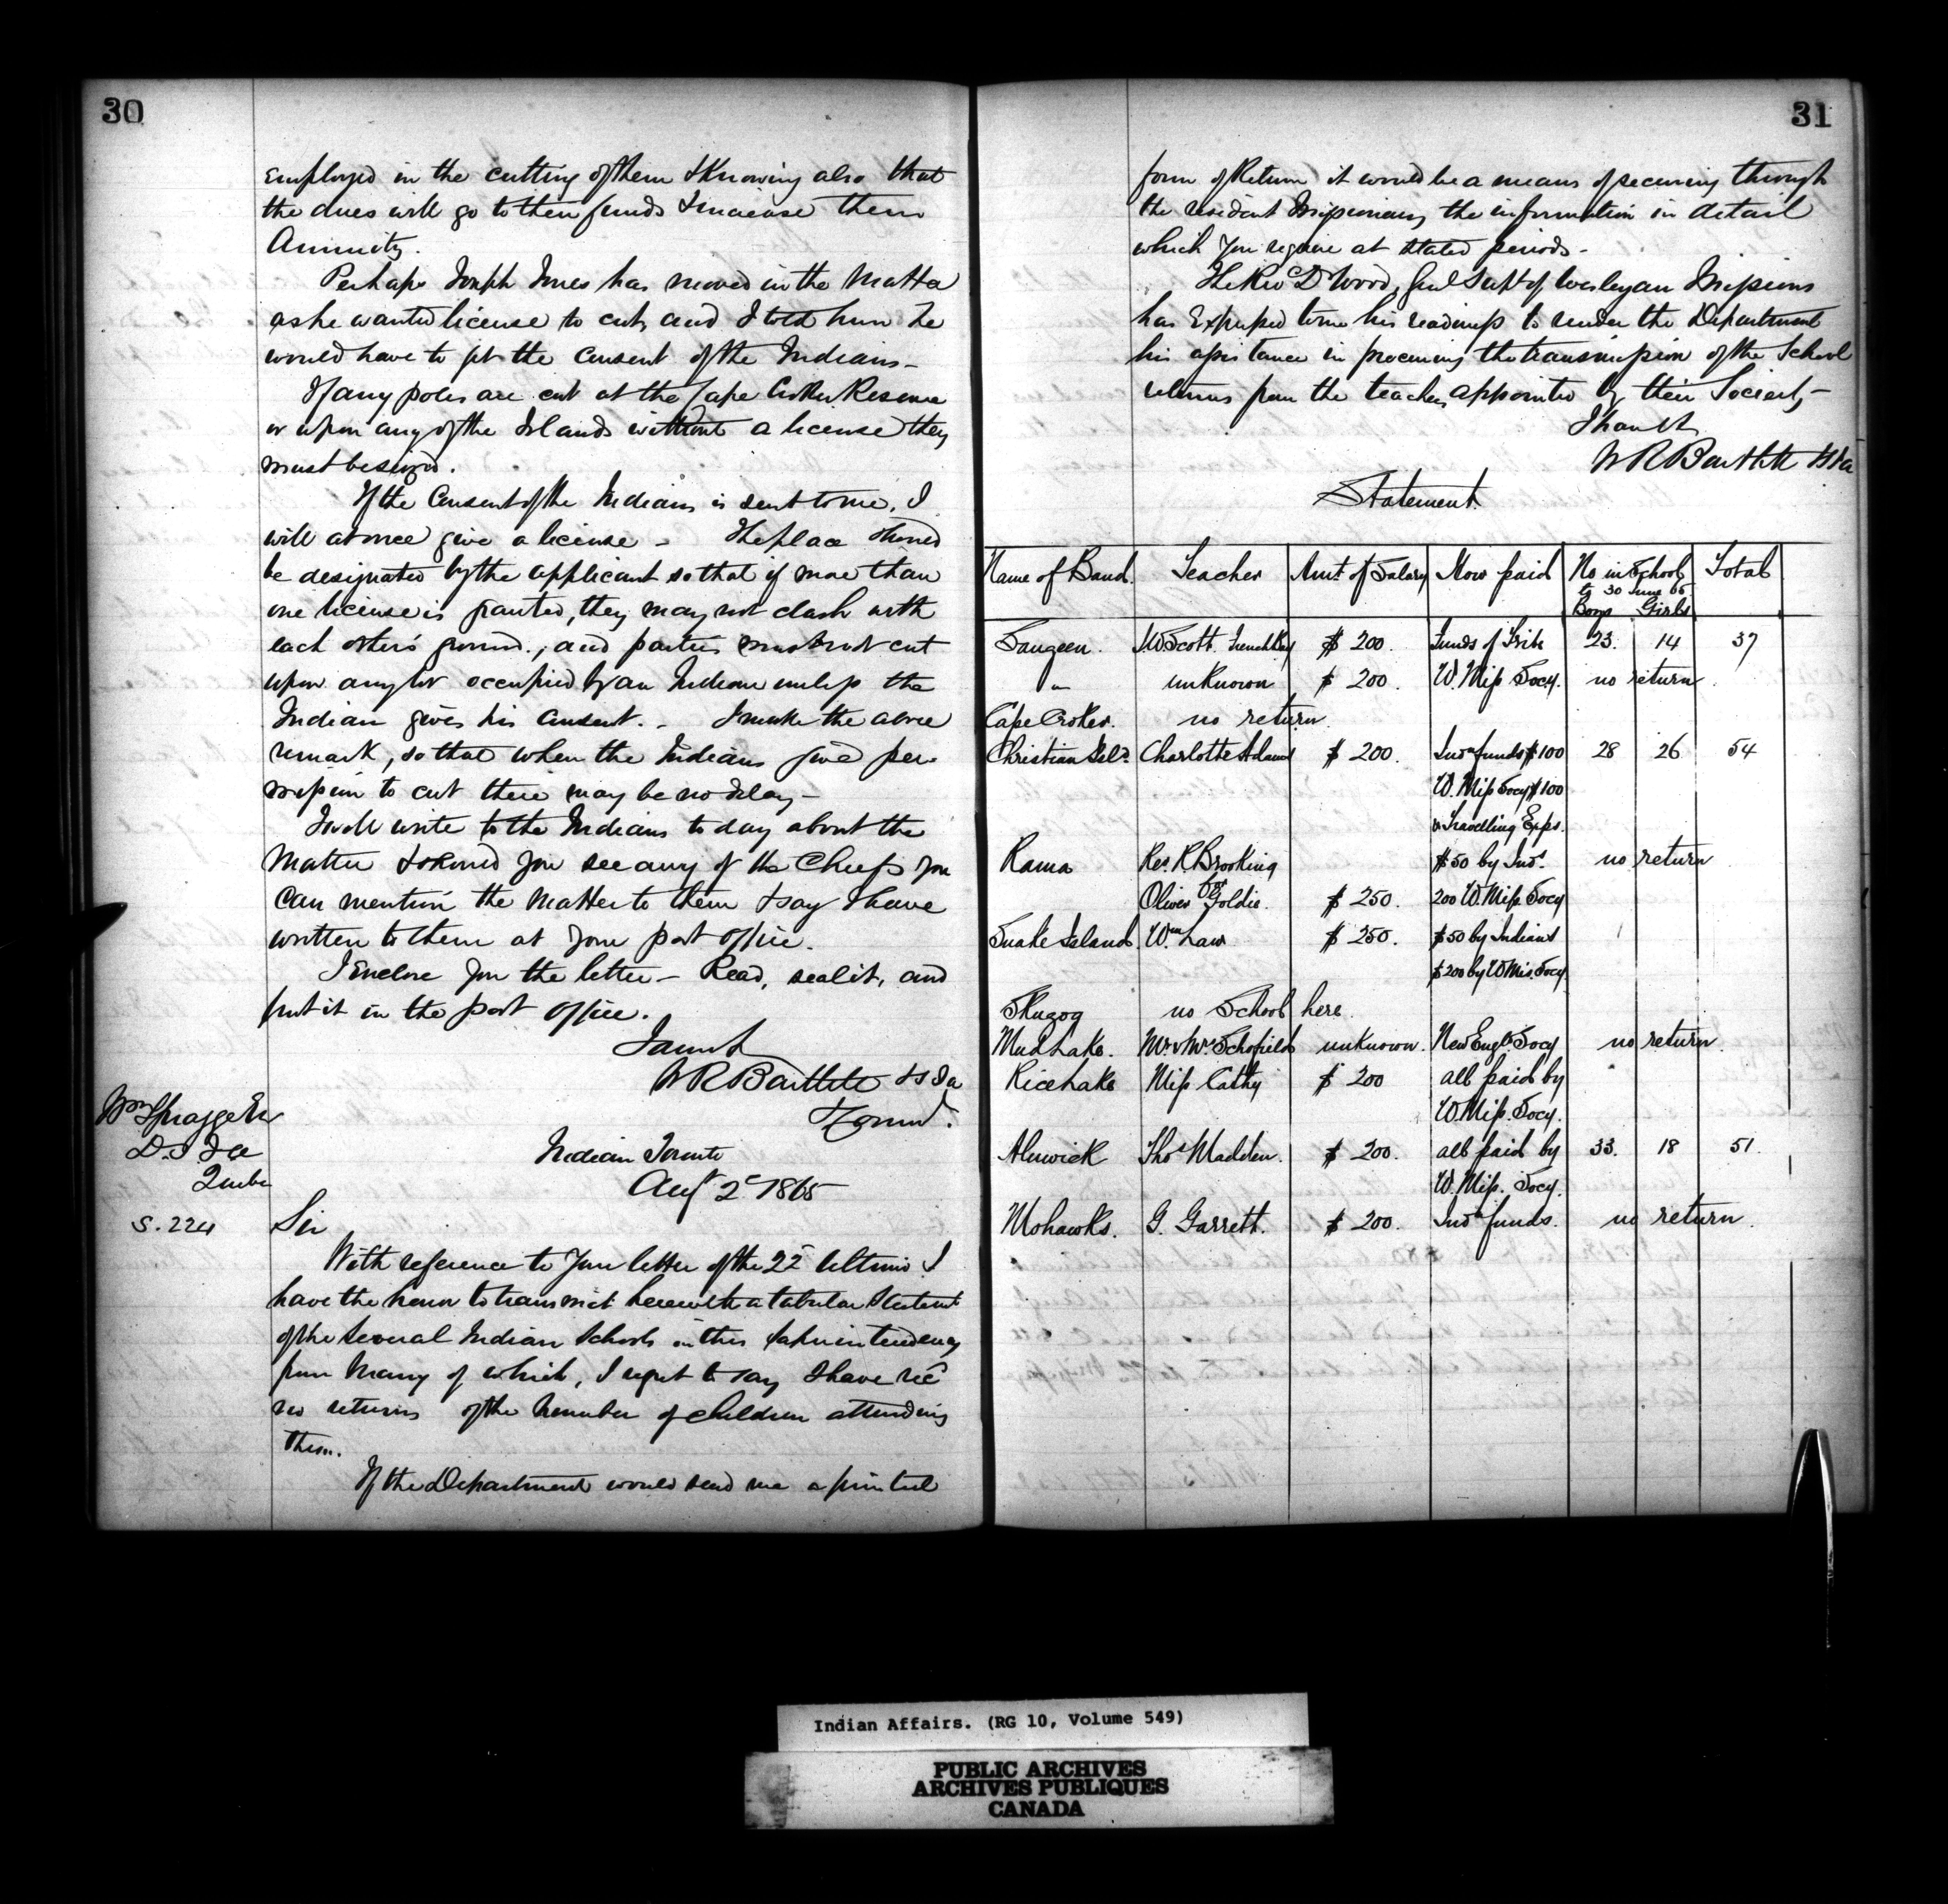 30
employed in the cutting of them & Knowing also that
the dues will go to their funds & increase their
Annuity.
Perhaps Joseph Jones has moved in the Matter
as he wanted license to cut, and I told him he
would have to get the Consent of the Indians –
If any poles are cut at the Cape Croker Reserve
or upon any of the Islands without a license they
must be seized.
If the Consent of the Indians is sent to me, I
will at once give a license – The place should
be designated by the applicant so that if more than
one license is granted, they may not clash with
each other's ground., and parties must not cut
upon any lot occupied by an Indian unless the
Indian gives his Consent. – I make the above
remark, so that when the Indians give per-
mission to cut there may be no delay –
I will write to the Indians to day about the
Matter & should you see any of the Chiefs you
can mention the Matter to them & say I have
written to them at your post office.
I Enclose you the letter – Read, seal it, and
put it in the post office.
I am &
W R Bartlett
Wm Spragge Esr
D.S.I.a
Quebec
Indian
Toronto
Augt 2d 1865
S. 224
Sir
With reference to your letter of the 22d Ultimo I
have the honor to transmit herewith a tabular Statement
of the several Indian Schools in this Superintendency
from Many of which, I regret to say I have recd
no returns of the Number of children attending
them.
If the Department would send me a printed
31
form of Return it would be a means of securing through
the resident Missionary the information in detail
which you require at stated periods –
The Rev D Wood, Genl Supt of Wesleyan Missions
has Expressed to me his readiness to render the Department
his assistance in procuring the transmission of the School
returns from the teachers appointed by their Society –
I have &
W R Bartlett
Statement.
Name of Band. Teacher Amt of Salary How paid No in School Total
to 30 June 65
Boys Girls
Saugeen. J W Scott French Bay $ 200. Funds of Tribe 23. 14 37
" unknown $ 200. W. Miss Socy. no return.
Cape Croker. no return.
Christian Isld. Charlotte Adams $ 200. Indn funds $100 28 26 54
W. Miss Socy $100
& Travelling Exps.
Rama Rev. R Brooking $50 by Inds. no return
or
Oliver Goldie. $ 250. 200 W. Miss Socy
Snake Island. Wm Law $ 250. $50 by Indians
$200 by W Mis. Socy
Skugog no School here.
Mud Lake. Mr & Mrs Schofield unknown. New Engld Socy no return.
Rice Lake Miss Cathy $ 200 all paid by
W. Miss. Socy.
Alnwick Thos Madden. $ 200. all paid by 33. 18 51.
W. Miss. Socy.
Mohawks. G. Garrett. $ 200. Indn funds. no return.
Indian Affairs. (RG 10, Volume 549)
PUBLIC ARCHIVES
ARCHIVES PUBLIQUES
CANADA